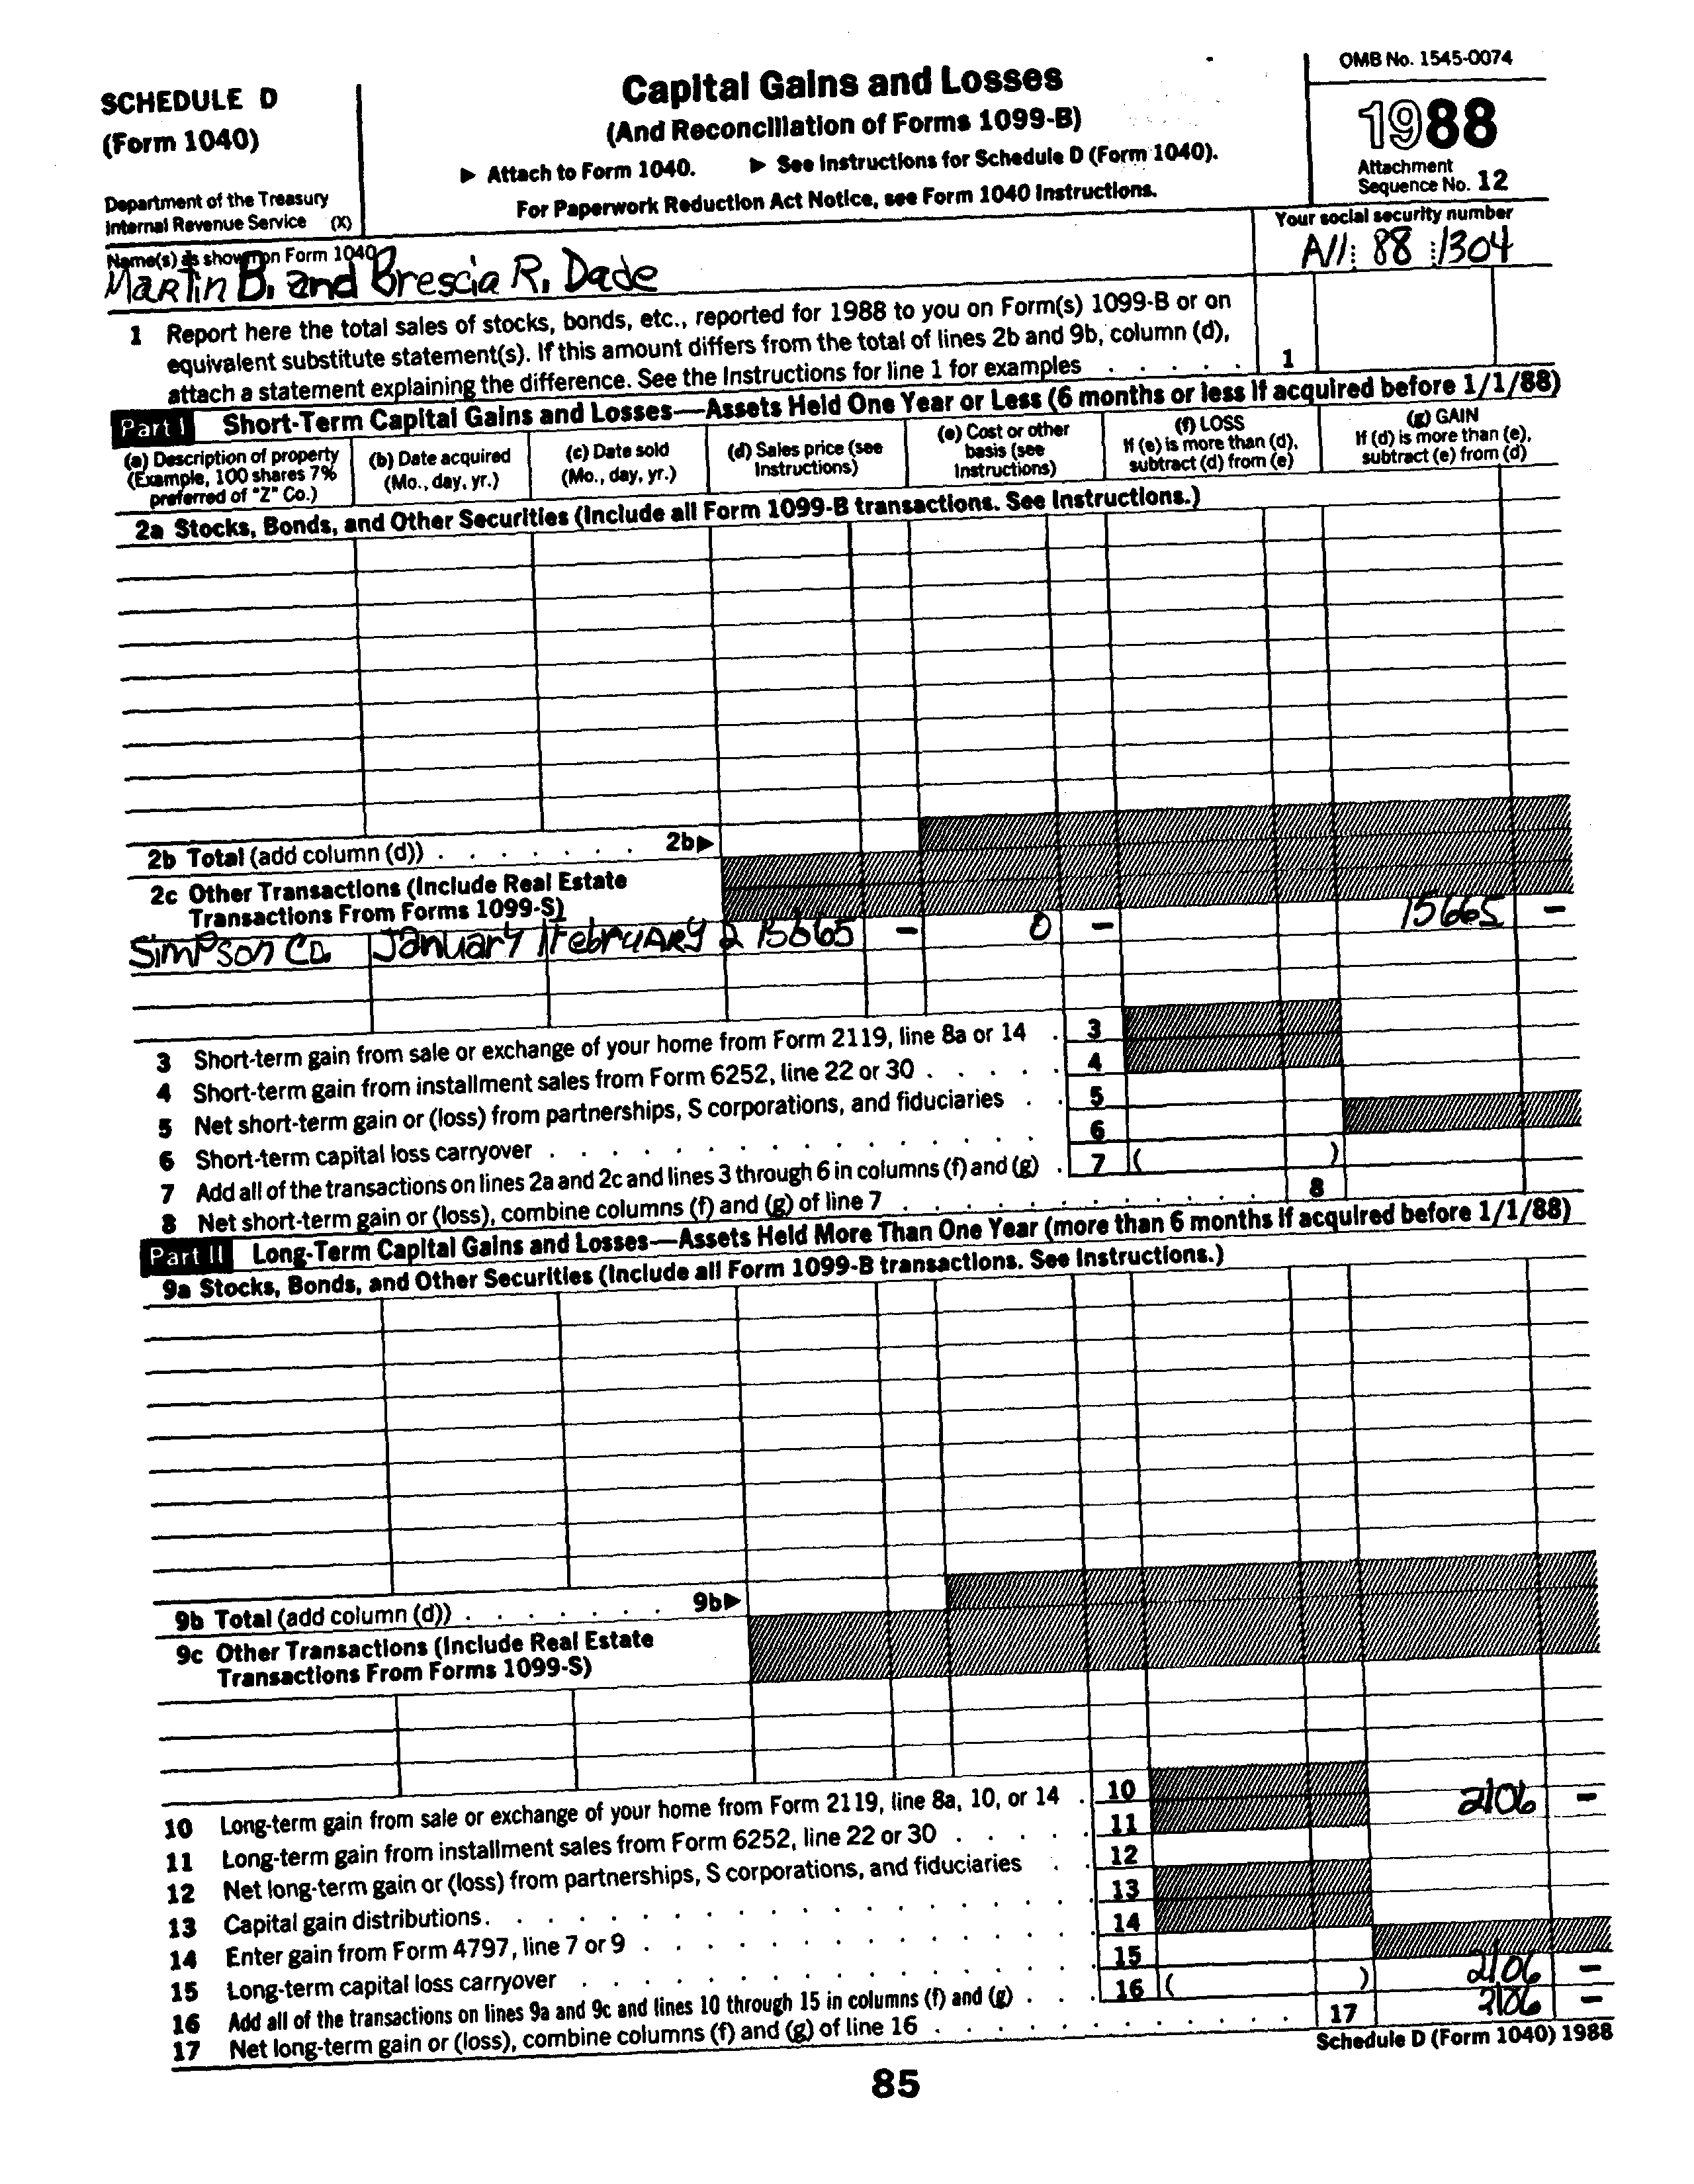 SCHEDULE D
(Form 1040)
Department of the Treasury
Internal Revenue Service (X)
Capital Gains and Losses
(And Reconciliation of Forms 1099-B)
▶ Attach to Form 1040. ▶ See Instructions for Schedule D (Form 1040).
For Paperwork Reduction Act Notice, see Form 1040 Instructions.
OMB No. 1545-0074
1988
Attachment
Sequence No. 12
Name(s) as shown on Form 1040
Martin B. and Brescia R. Dade
Your social security number
88 1304
1 Report here the total sales of stocks, bonds, etc., reported for 1988 to you on Form(s) 1099-B or on
equivalent substitute statement(s). If this amount differs from the total of lines 2b and 9b, column (d),
attach a statement explaining the difference. See the Instructions for line 1 for examples . . . . . 1
Part I Short-Term Capital Gains and Losses—Assets Held One Year or Less (6 months or less if acquired before 1/1/88)
(a) Description of property
(Example, 100 shares 7%
preferred of "Z" Co.)
(b) Date acquired
(Mo., day, yr.)
(c) Date sold
(Mo., day, yr.)
(d) Sales price (see
Instructions)
(e) Cost or other
basis (see
Instructions)
(f) LOSS
If (e) is more than (d),
subtract (d) from (e)
(g) GAIN
If (d) is more than (e),
subtract (e) from (d)
2a Stocks, Bonds, and Other Securities (Include all Form 1099-B transactions. See Instructions.)
2b Total (add column (d)) . . . . . . . 2b▶
2c Other Transactions (Include Real Estate
Transactions From Forms 1099-S)
Simpson Co. January 1 February 2 15665 - 0 - 15665 -
3 Short-term gain from sale or exchange of your home from Form 2119, line 8a or 14 . 3
4 Short-term gain from installment sales from Form 6252, line 22 or 30 . . . . . 4
5 Net short-term gain or (loss) from partnerships, S corporations, and fiduciaries . . 5
6 Short-term capital loss carryover . . . . . . . . . . . . . . . 6
7 Add all of the transactions on lines 2a and 2c and lines 3 through 6 in columns (f) and (g) . 7 ( )
8 Net short-term gain or (loss), combine columns (f) and (g) of line 7 . . . . . . . . . . . 8
Part II Long-Term Capital Gains and Losses—Assets Held More Than One Year (more than 6 months if acquired before 1/1/88)
9a Stocks, Bonds, and Other Securities (Include all Form 1099-B transactions. See Instructions.)
9b Total (add column (d)) . . . . . . . 9b▶
9c Other Transactions (Include Real Estate
Transactions From Forms 1099-S)
10 Long-term gain from sale or exchange of your home from Form 2119, line 8a, 10, or 14 . 10 2106 -
11 Long-term gain from installment sales from Form 6252, line 22 or 30 . . . . . 11
12 Net long-term gain or (loss) from partnerships, S corporations, and fiduciaries . . 12
13 Capital gain distributions. . . . . . . . . . . . . . . . . . 13
14 Enter gain from Form 4797, line 7 or 9 . . . . . . . . . . . . . 14
15 Long-term capital loss carryover . . . . . . . . . . . . . . . 15
16 Add all of the transactions on lines 9a and 9c and lines 10 through 15 in columns (f) and (g) . . . 16 ( ) 2106 -
17 Net long-term gain or (loss), combine columns (f) and (g) of line 16 . . . . . . . . . . . 17 2106 -
Schedule D (Form 1040) 1988
85